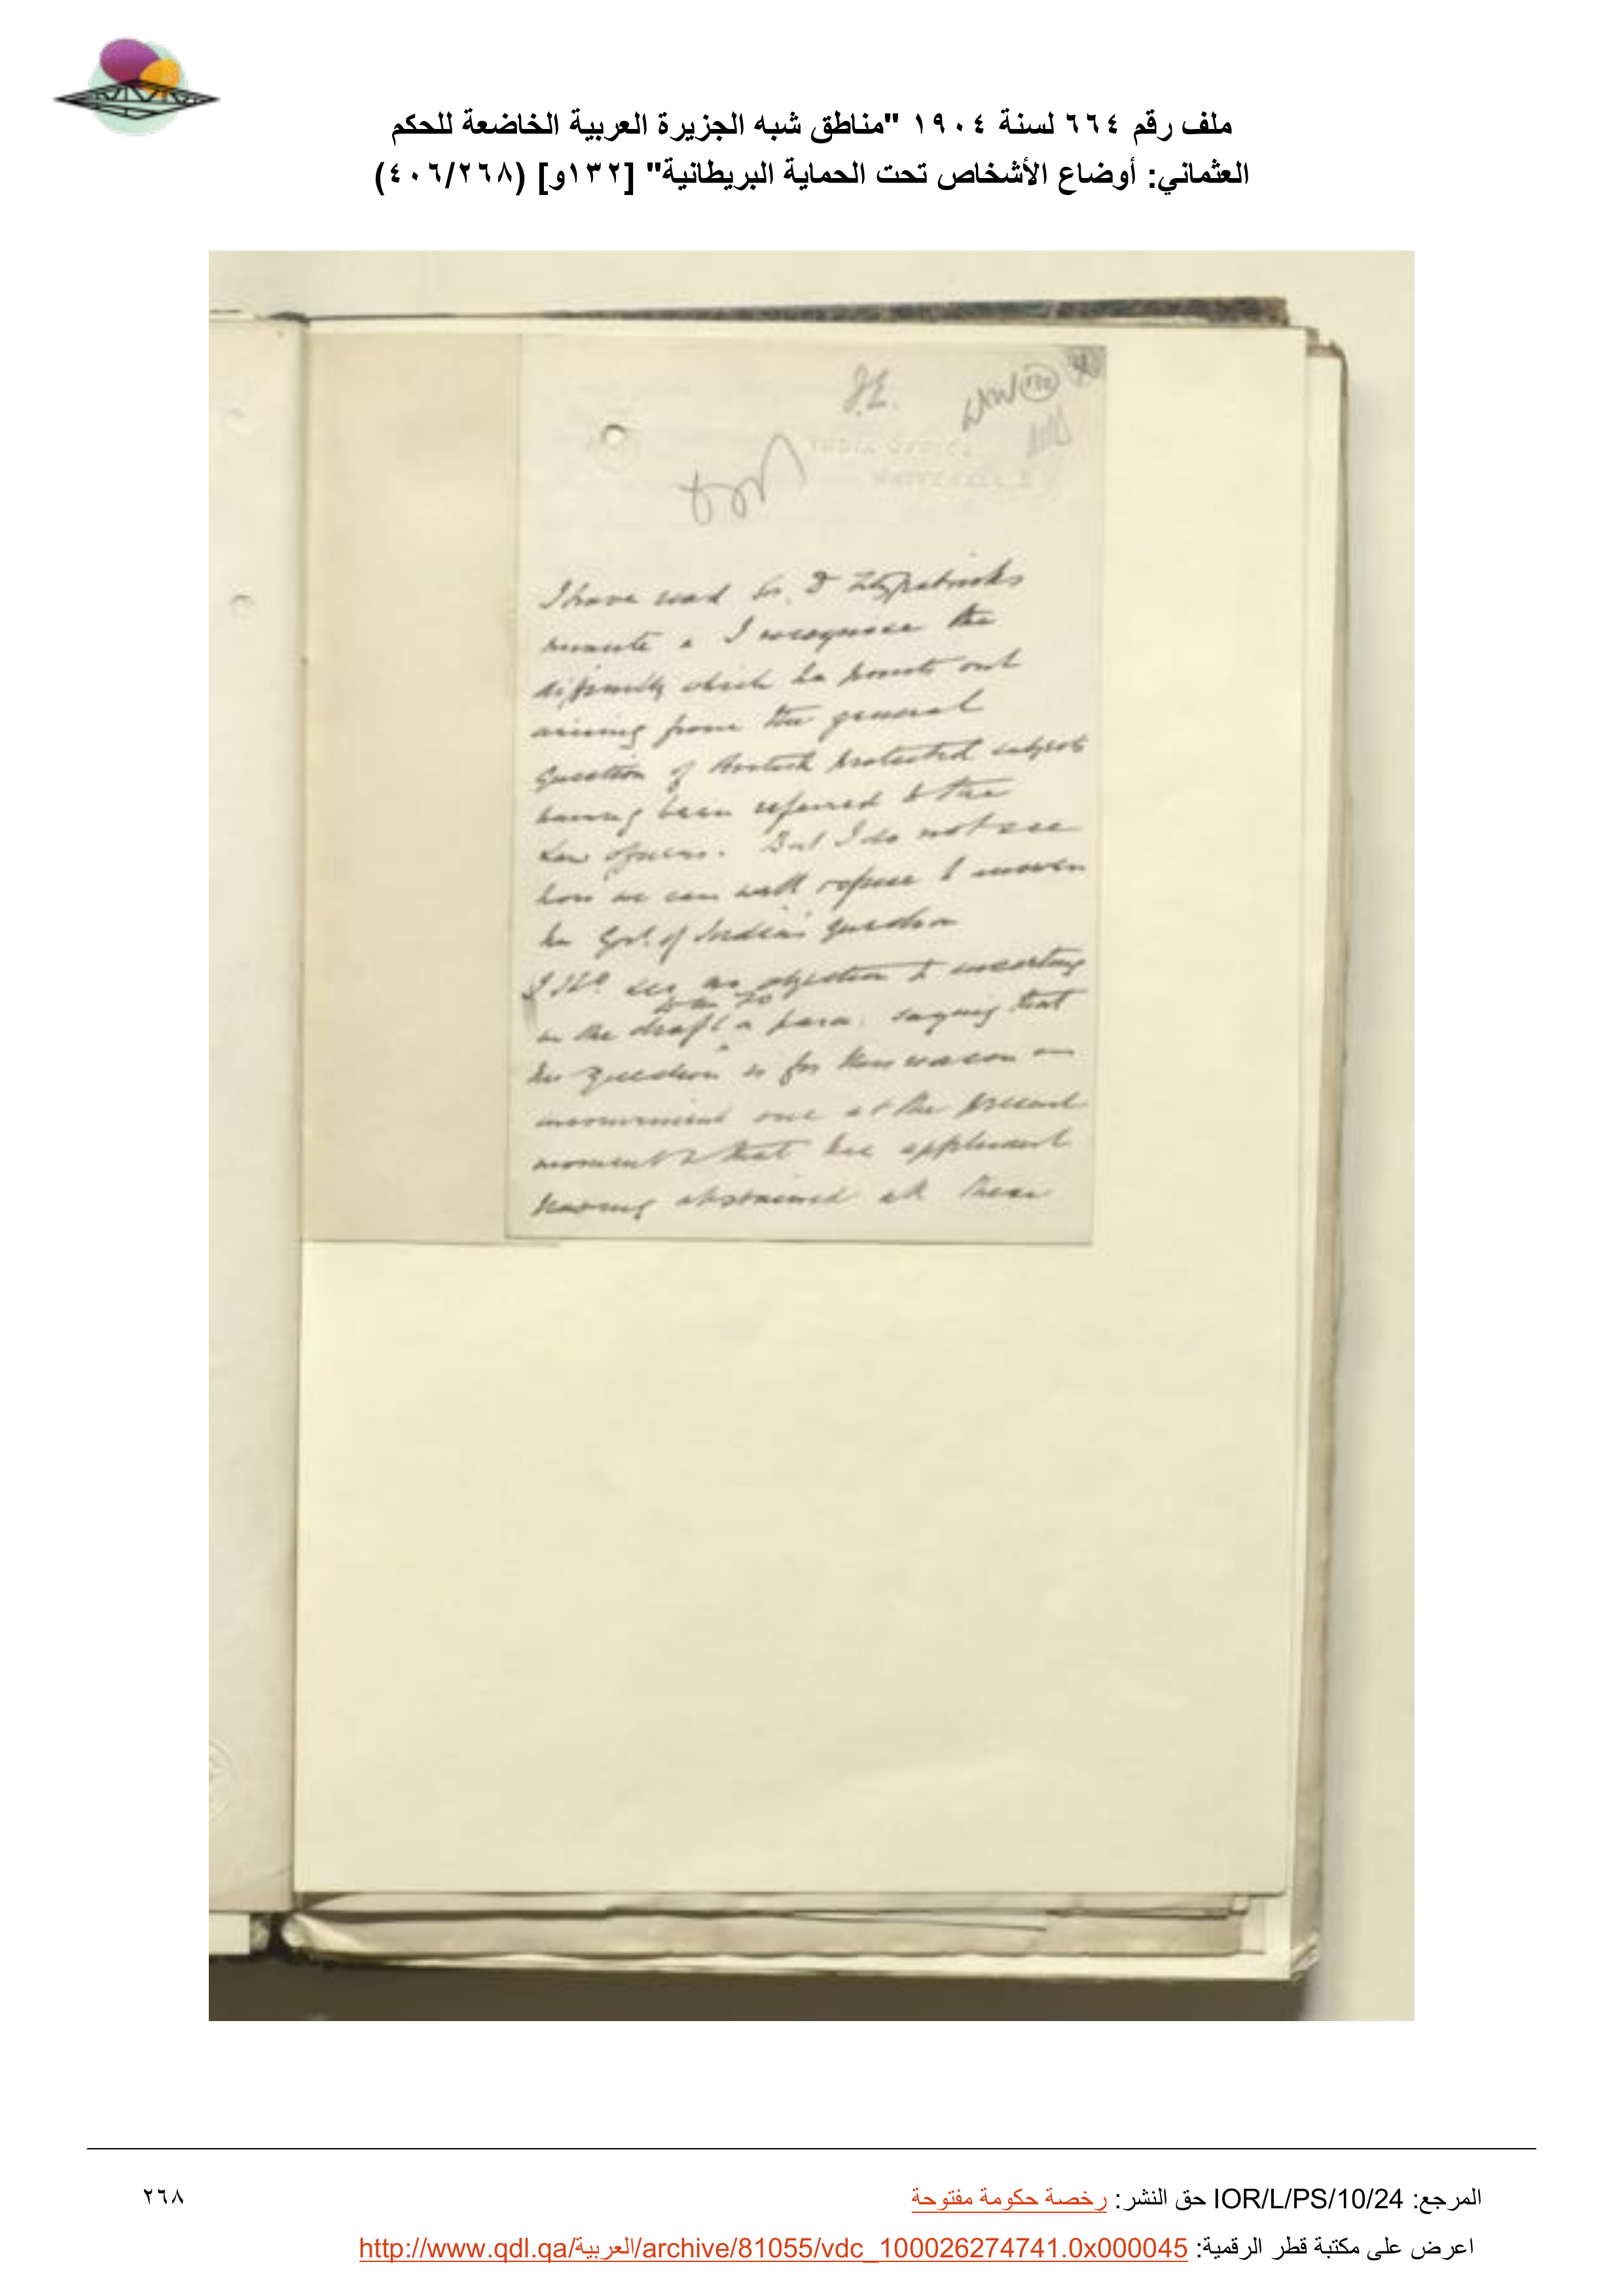 ملف رقم ٦٦٤ لسنة ١٩٠٤ "مناطق شبه الجزيرة العربية الخاضعة للحكم
العثماني: أوضاع الأشخاص تحت الحماية البريطانية" [١٣٢و] (٤٠٦/٢٦٨)
J.E.
132
INDIA OFFICE
WHITEHALL S
I have read Sr. D Fitzpatricks
minute & I recognise the
difficulty which he points out
arising from the general
question of British protected subjects
having been referred to the
Law Officers. But I do not see
how we can well refuse to answer
the Govt. of India's question
I shd. see no objection to inserting
in the draft a para. saying that
the question is for this reason an
inconvenient one at the present
moment & that the applicant
having obtained all these
المرجع: IOR/L/PS/10/24 حق النشر: رخصة حكومة مفتوحة
٢٦٨
اعرض على مكتبة قطر الرقمية: http://www.qdl.qa/العربية/archive/81055/vdc_100026274741.0x000045